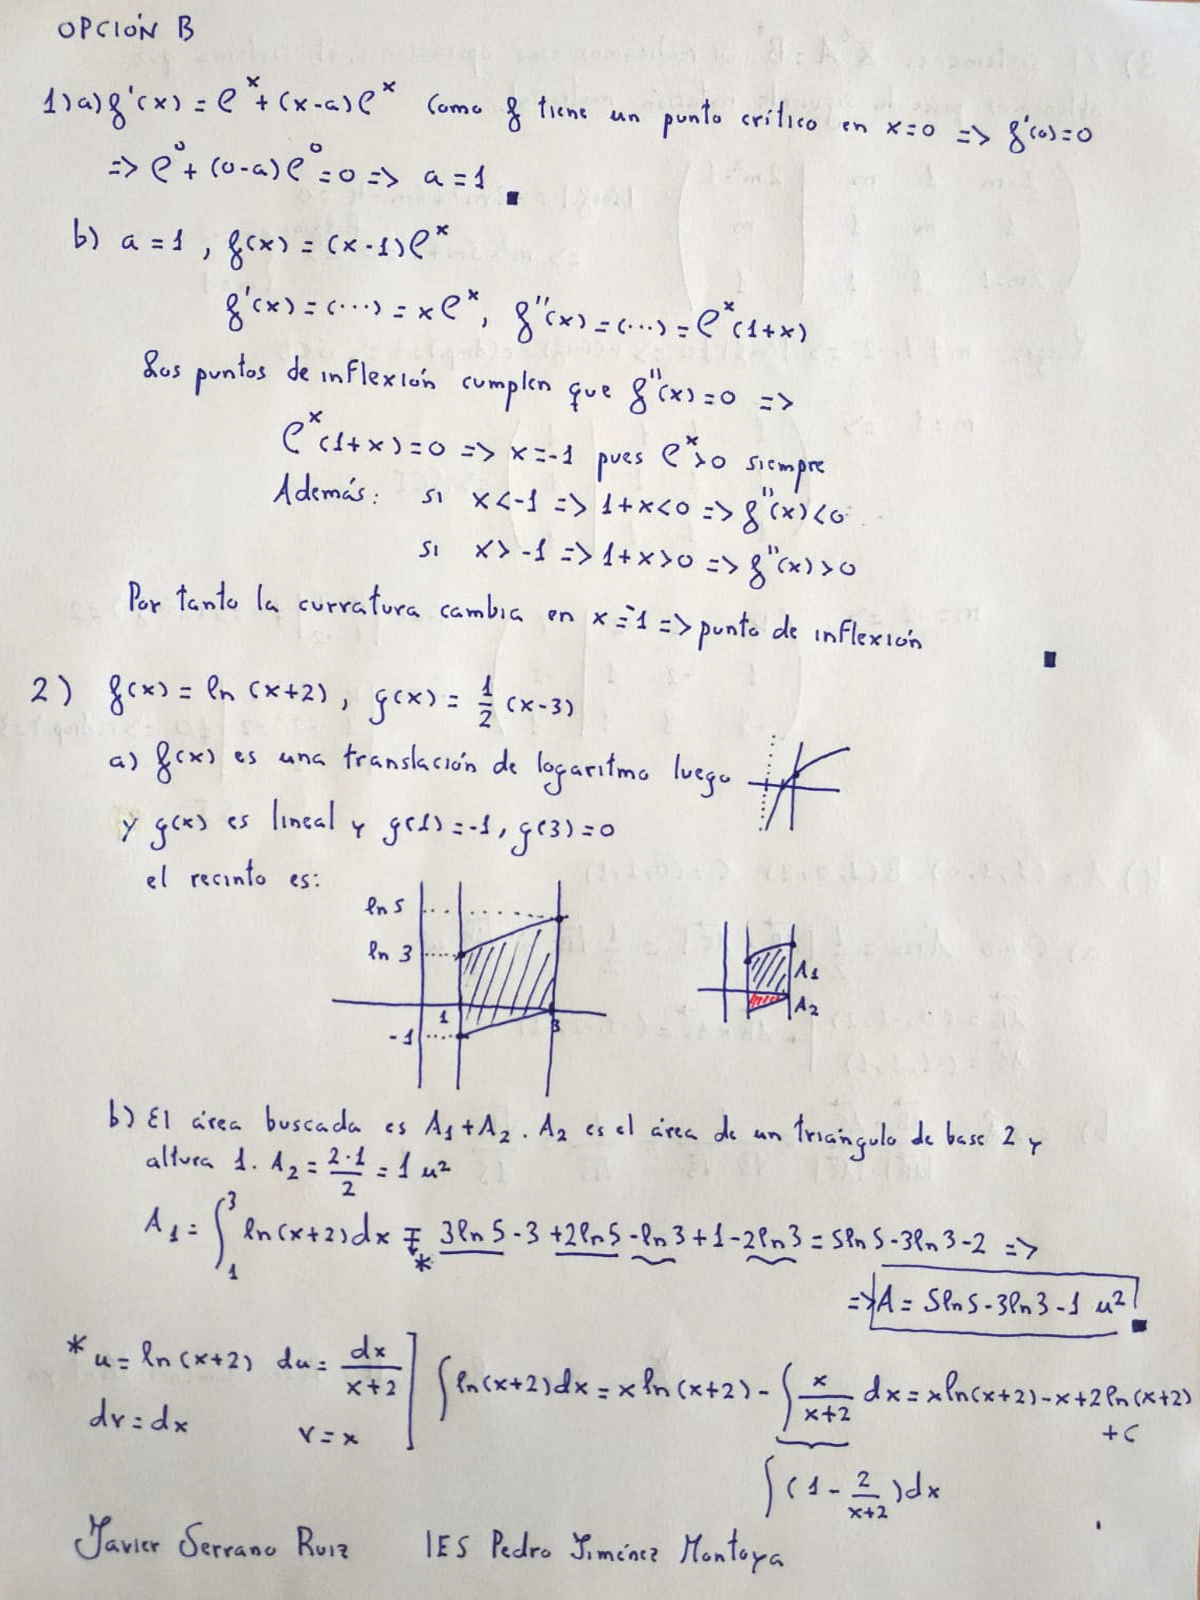 OPCIÓN B
1) a) f'(x) = e^x + (x-a)e^x Como f tiene un punto crítico en x=0 => f'(0)=0
=> e^0 + (0-a)e^0 = 0 => a=1
b) a=1, f(x) = (x-1)e^x
f'(x) = (...) = x e^x, f''(x) = (...) = e^x(1+x)
Los puntos de inflexión cumplen que f''(x)=0 =>
e^x(1+x)=0 => x=-1 pues e^x>0 siempre
Además: si x<-1 => 1+x<0 => f''(x)<0
si x>-1 => 1+x>0 => f''(x)>0
Por tanto la curvatura cambia en x=-1 => punto de inflexión
2) f(x) = ln(x+2), g(x) = 1/2 (x-3)
a) f(x) es una translación de logaritmo luego
y g(x) es lineal y g(1)=-1, g(3)=0
el recinto es:
ln 5
ln 3
1
3
-1
A1
A2
b) El área buscada es A1+A2. A2 es el área de un triángulo de base 2 y
altura 1. A2 = 2·1/2 = 1 u²
A1 = ∫_1^3 ln(x+2)dx =* 3ln5-3+2ln5-ln3+1-2ln3 = 5ln5-3ln3-2 =>
=> A = 5ln5-3ln3-1 u²
* u = ln(x+2) du = dx/(x+2) ∫ln(x+2)dx = x ln(x+2) - ∫ x/(x+2) dx = x ln(x+2)-x+2ln(x+2)
+C
dv = dx v = x
∫(1 - 2/(x+2))dx
Javier Serrano Ruiz IES Pedro Jiménez Montoya